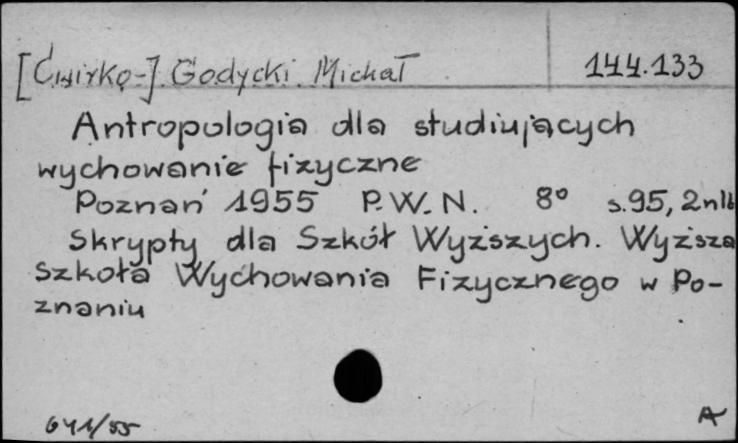 [Ćwirko-] Godycki Michał 144.133
Antropologia dla studiujących
wychowanie fizyczne
Poznań 1955 P.W.N. 8° s.95, 2nlb
Skrypty dla Szkół Wyższych. Wyższa
Szkoła Wychowania Fizycznego w Po-
znaniu
641/55 A